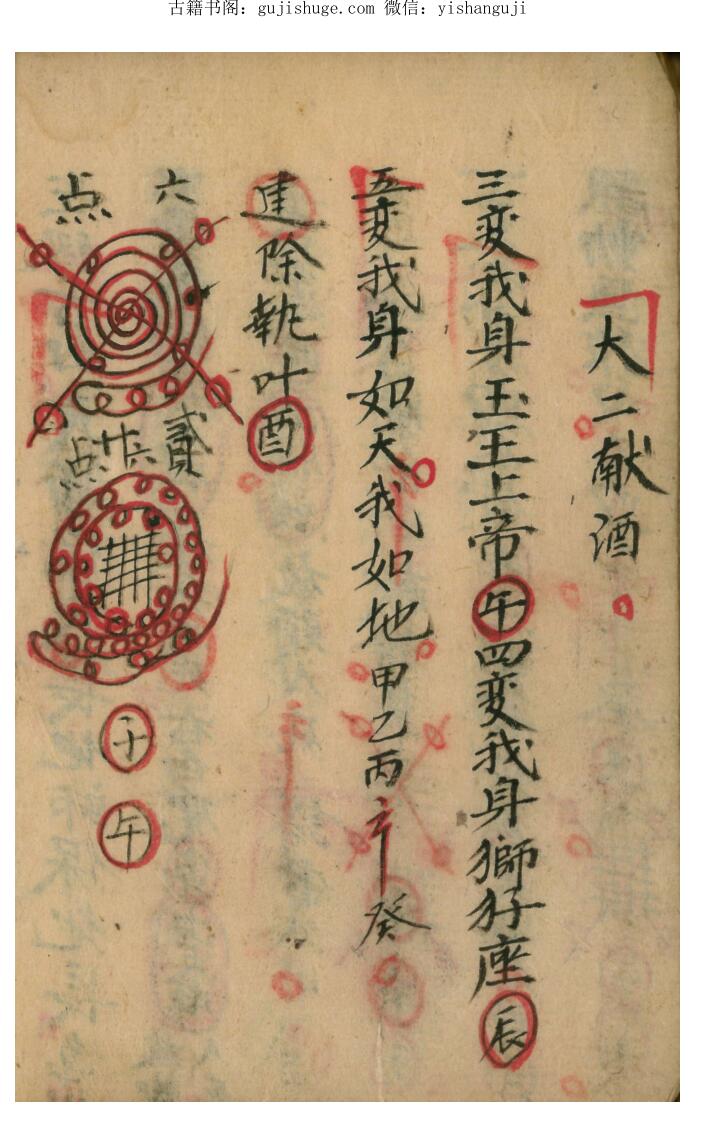 古籍书阁：gujishuge.com 微信：yishanguji
大二献酒
三变我身玉王上帝午四变我身獅子座辰
五变我身如天我如地甲乙丙辛癸
建除執叶酉
六点
貳廿六点
子
午